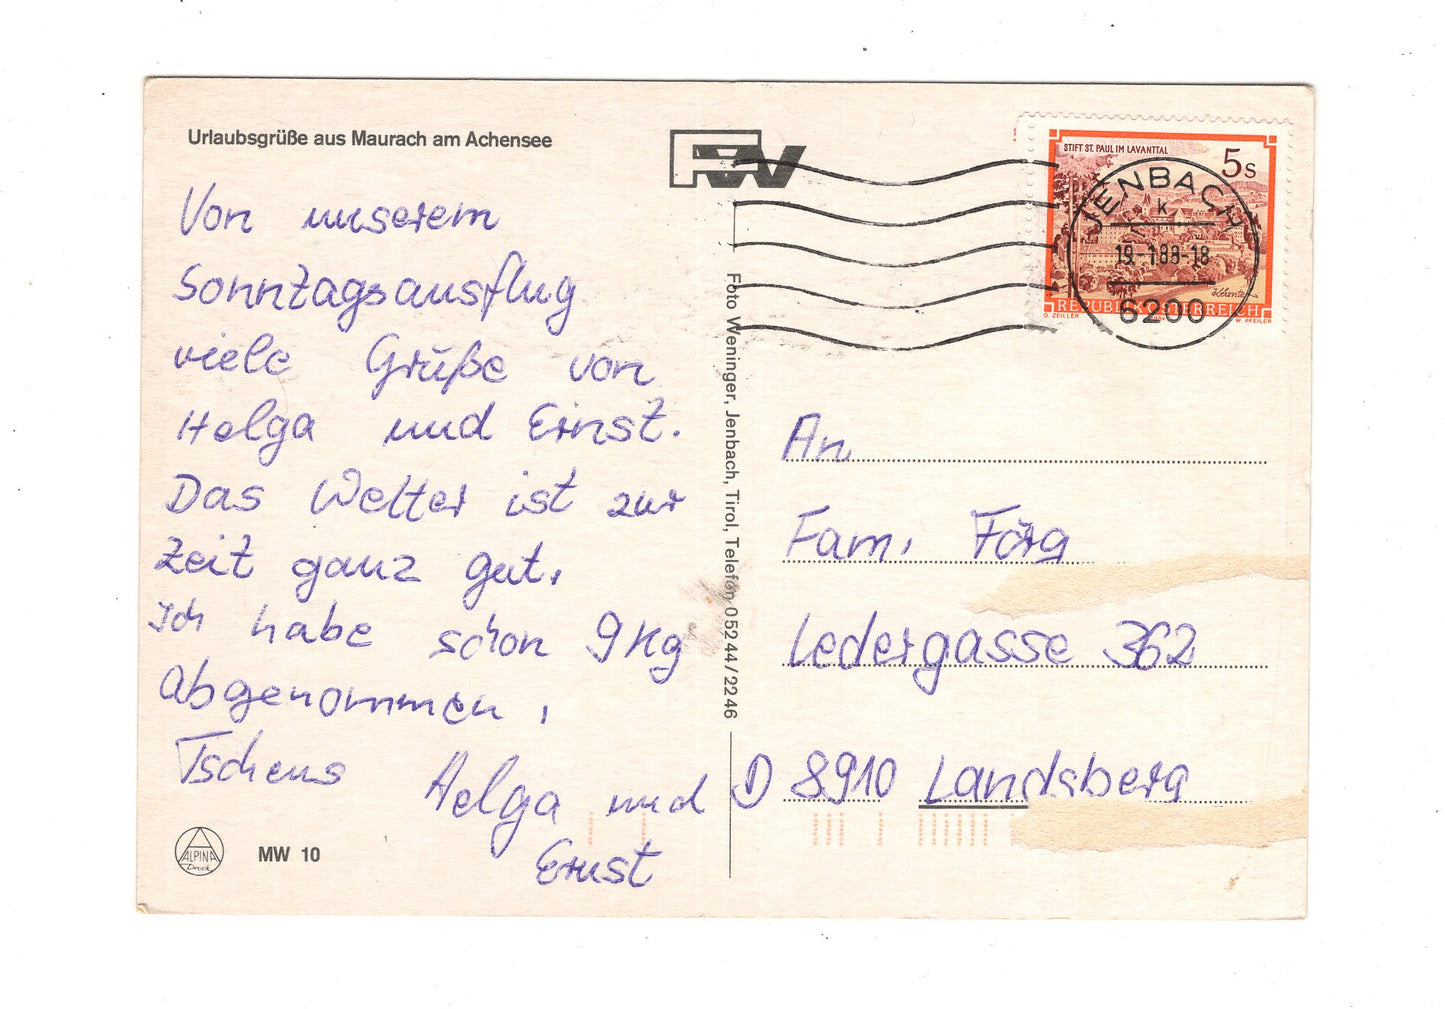 Urlaubsgrüße aus Maurach am Achensee
FW
Von unserem
Sonntagsausflug
viele Grüße von
Helga und Ernst.
Das Wetter ist zur
Zeit ganz gut.
Ich habe schon 9 Kg
abgenommen,
Tschens
Helga und
Ernst
ALPINA
Druck
MW 10
Foto Weninger, Jenbach, Tirol, Telefon 05244/2246
STIFT ST. PAUL IM LAVANTTAL
5s
Kärnten
REPUBLIK ÖSTERREICH
O. ZEILLER
W. PFEILER
JENBACH
k
19.-1.88-18
6200
An
Fam. Förg
Ledergasse 362
D 8910 Landsberg